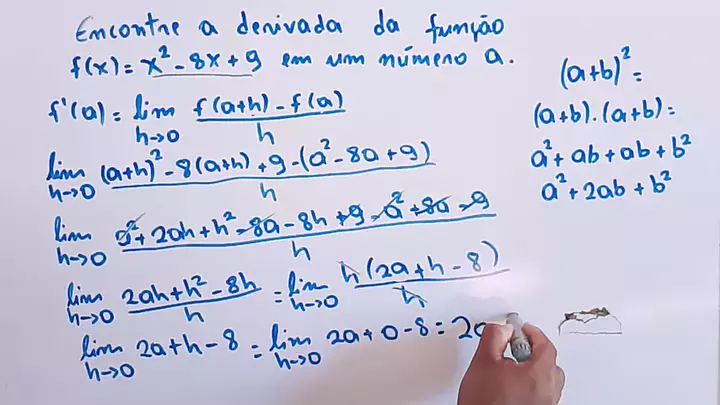 Encontre a derivada da função
f(x) = x² - 8x + 9 em um número a.
f'(a) = lim h→0 f(a+h) - f(a) / h
lim h→0 (a+h)² - 8(a+h) + 9 - (a² - 8a + 9) / h
lim h→0 a² + 2ah + h² - 8a - 8h + 9 - a² + 8a - 9 / h
lim h→0 2ah + h² - 8h / h = lim h→0 h(2a + h - 8) / h
lim h→0 2a + h - 8 = lim h→0 2a + 0 - 8 = 2a
(a+b)² =
(a+b).(a+b) =
a² + ab + ab + b²
a² + 2ab + b²